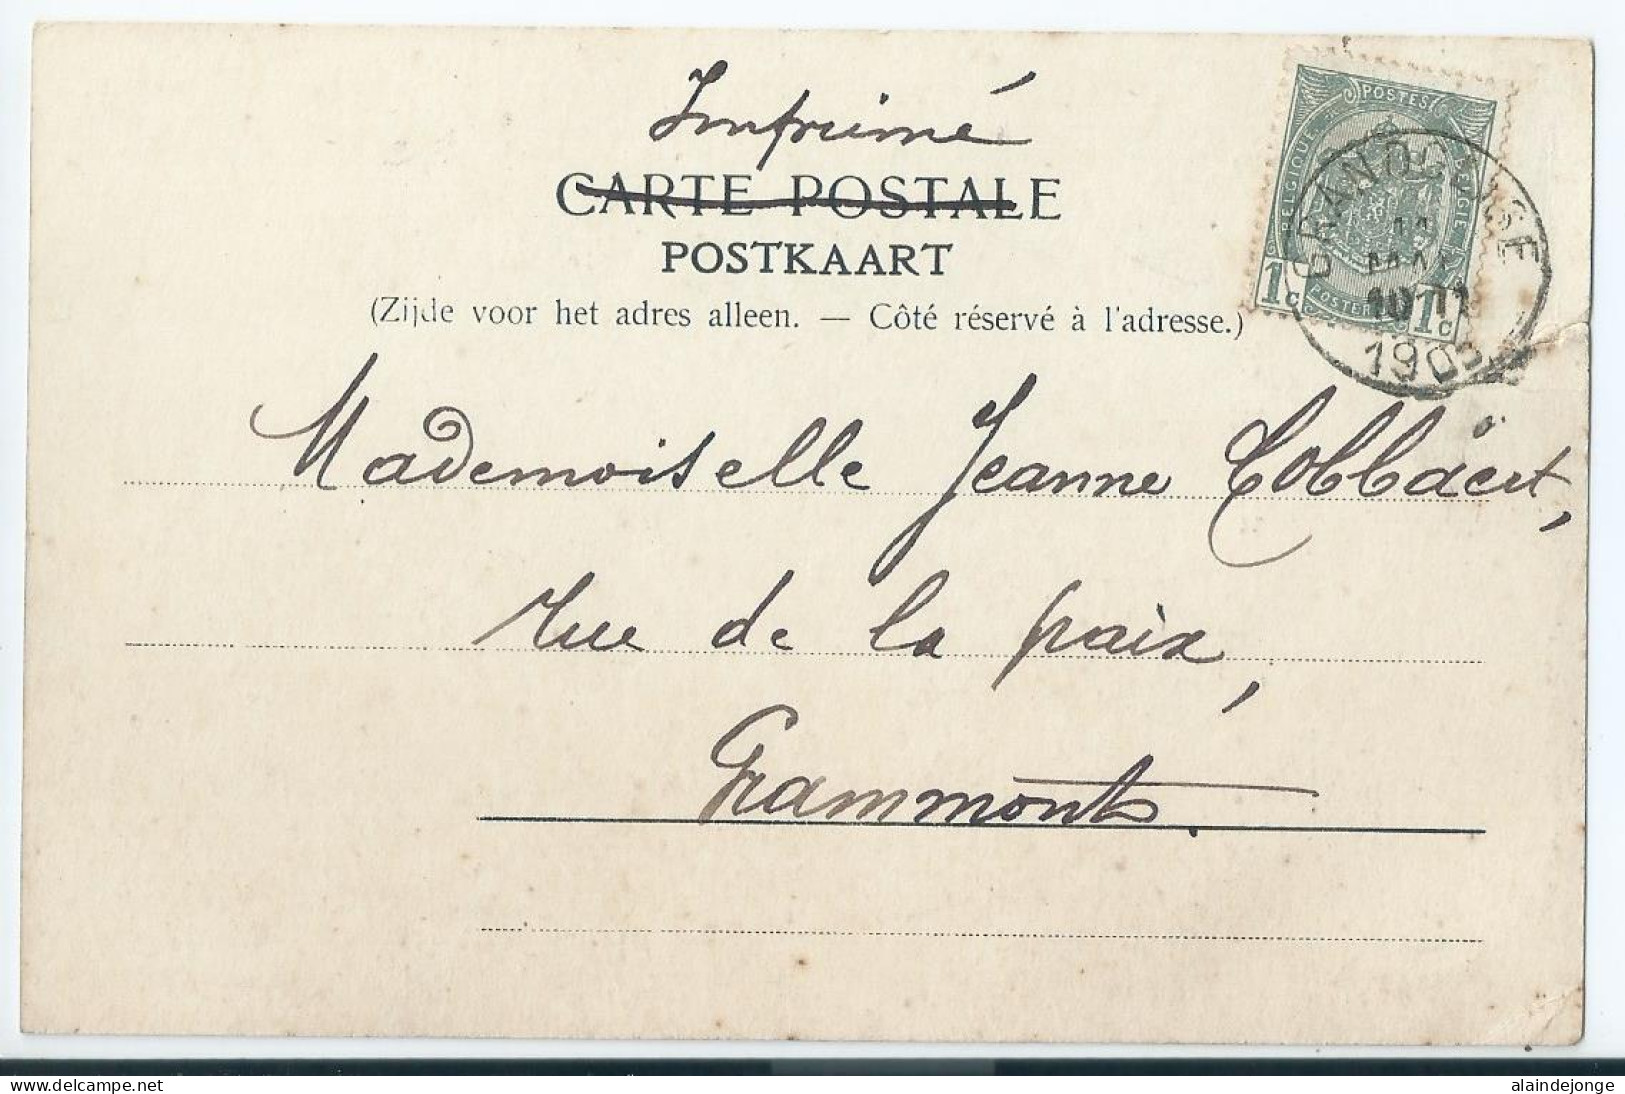 Imprimé
CARTE POSTALE
POSTKAART
(Zijde voor het adres alleen. — Côté réservé à l'adresse.)
POSTES
BELGIQUE
BELGIË
1c
POSTERIJEN
1c
11
MAI
10-11
Mademoiselle Jeanne Cobbaert,
rue de la paix,
Grammont.
www.delcampe.net
alaindejonge